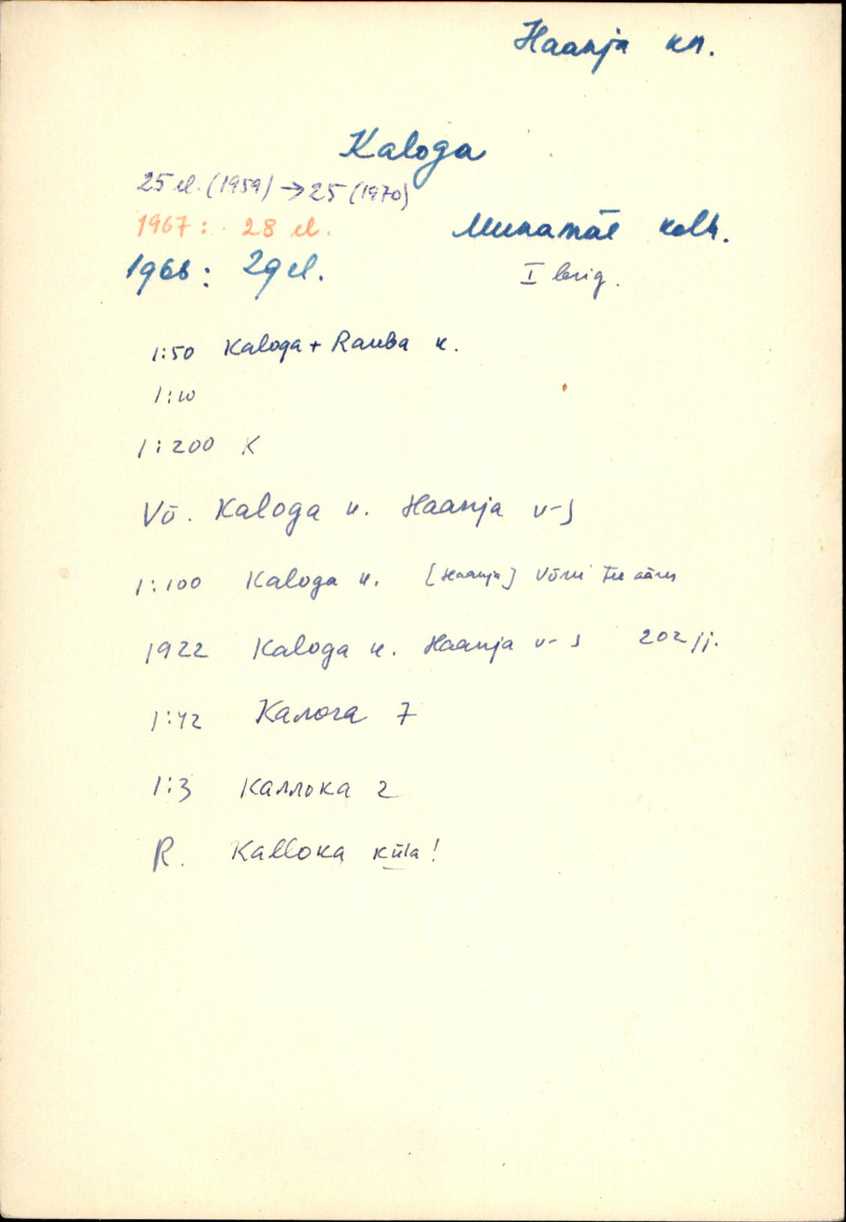 Haanja kn.
Kaloga
25 el. (1959) → 25 (1970)
1967: 28 el.
Munamäe kolh.
1966: 29 el.
I brig.
1:50 Kaloga + Rauba k.
1:10
1:200 K
Võ. Kaloga k. Haanja v-s
1:100 Kaloga k. [Haanja] Võru tee ääres
1922 Kaloga k. Haanja v-s 202 jj.
1:42 Калога 7
1:3 Каллока 2
R. Kalloka küla!